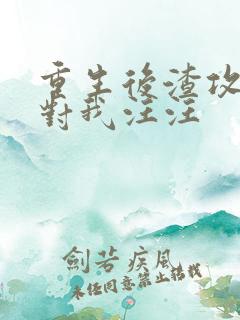 重生後渣攻
對我汪汪
劍若疾風
未經同意禁止轉載